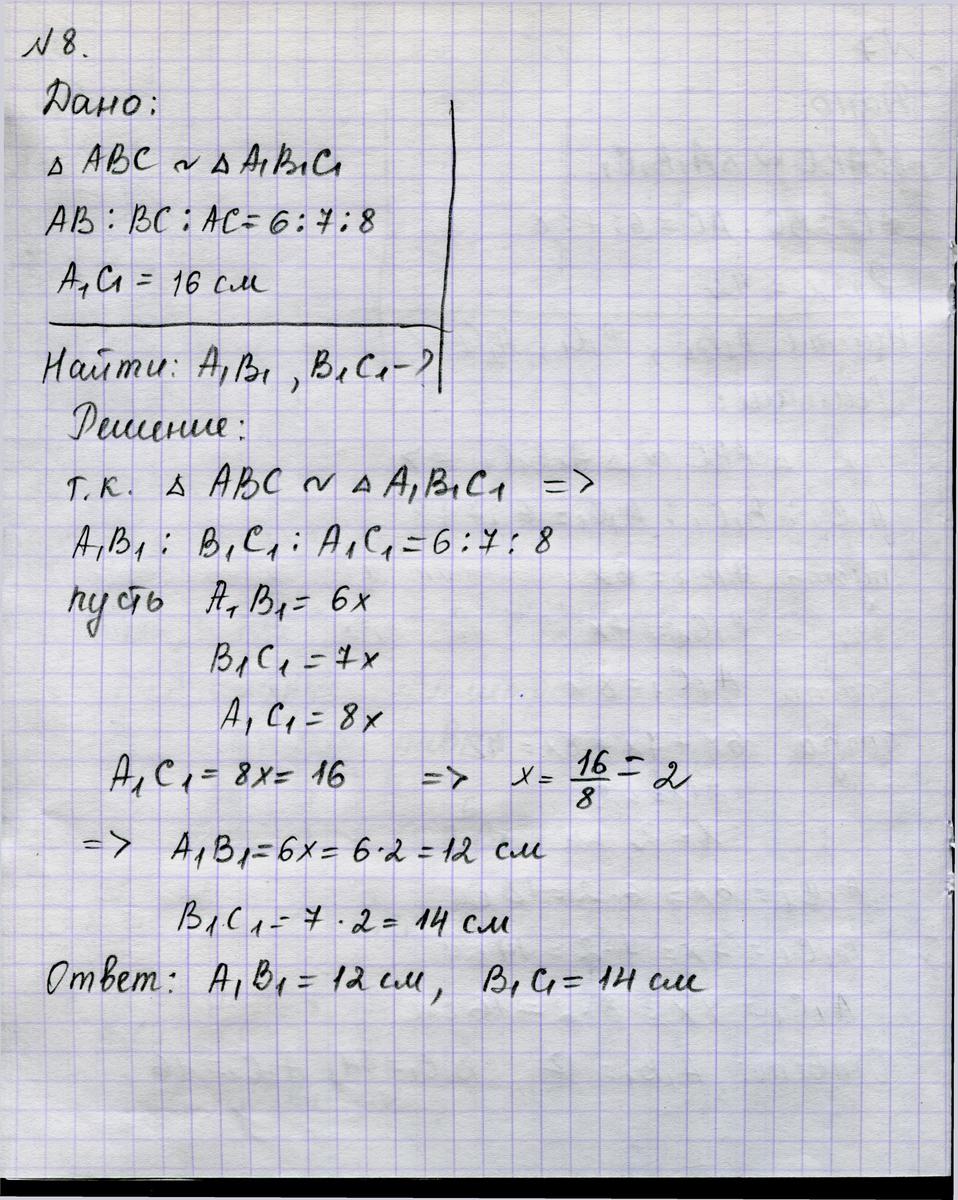 N 8.
Дано:
△ ABC ~ △ A₁B₁C₁
AB : BC : AC = 6 : 7 : 8
A₁C₁ = 16 см
Найти: A₁B₁ , B₁C₁ - ?
Решение:
т.к. △ ABC ~ △ A₁B₁C₁ =>
A₁B₁ : B₁C₁ : A₁C₁ = 6 : 7 : 8
пусть A₁B₁ = 6x
B₁C₁ = 7x
A₁C₁ = 8x
A₁C₁ = 8x = 16 => x = 16/8 = 2
=> A₁B₁ = 6x = 6·2 = 12 см
B₁C₁ = 7 · 2 = 14 см
Ответ: A₁B₁ = 12 см, B₁C₁ = 14 см